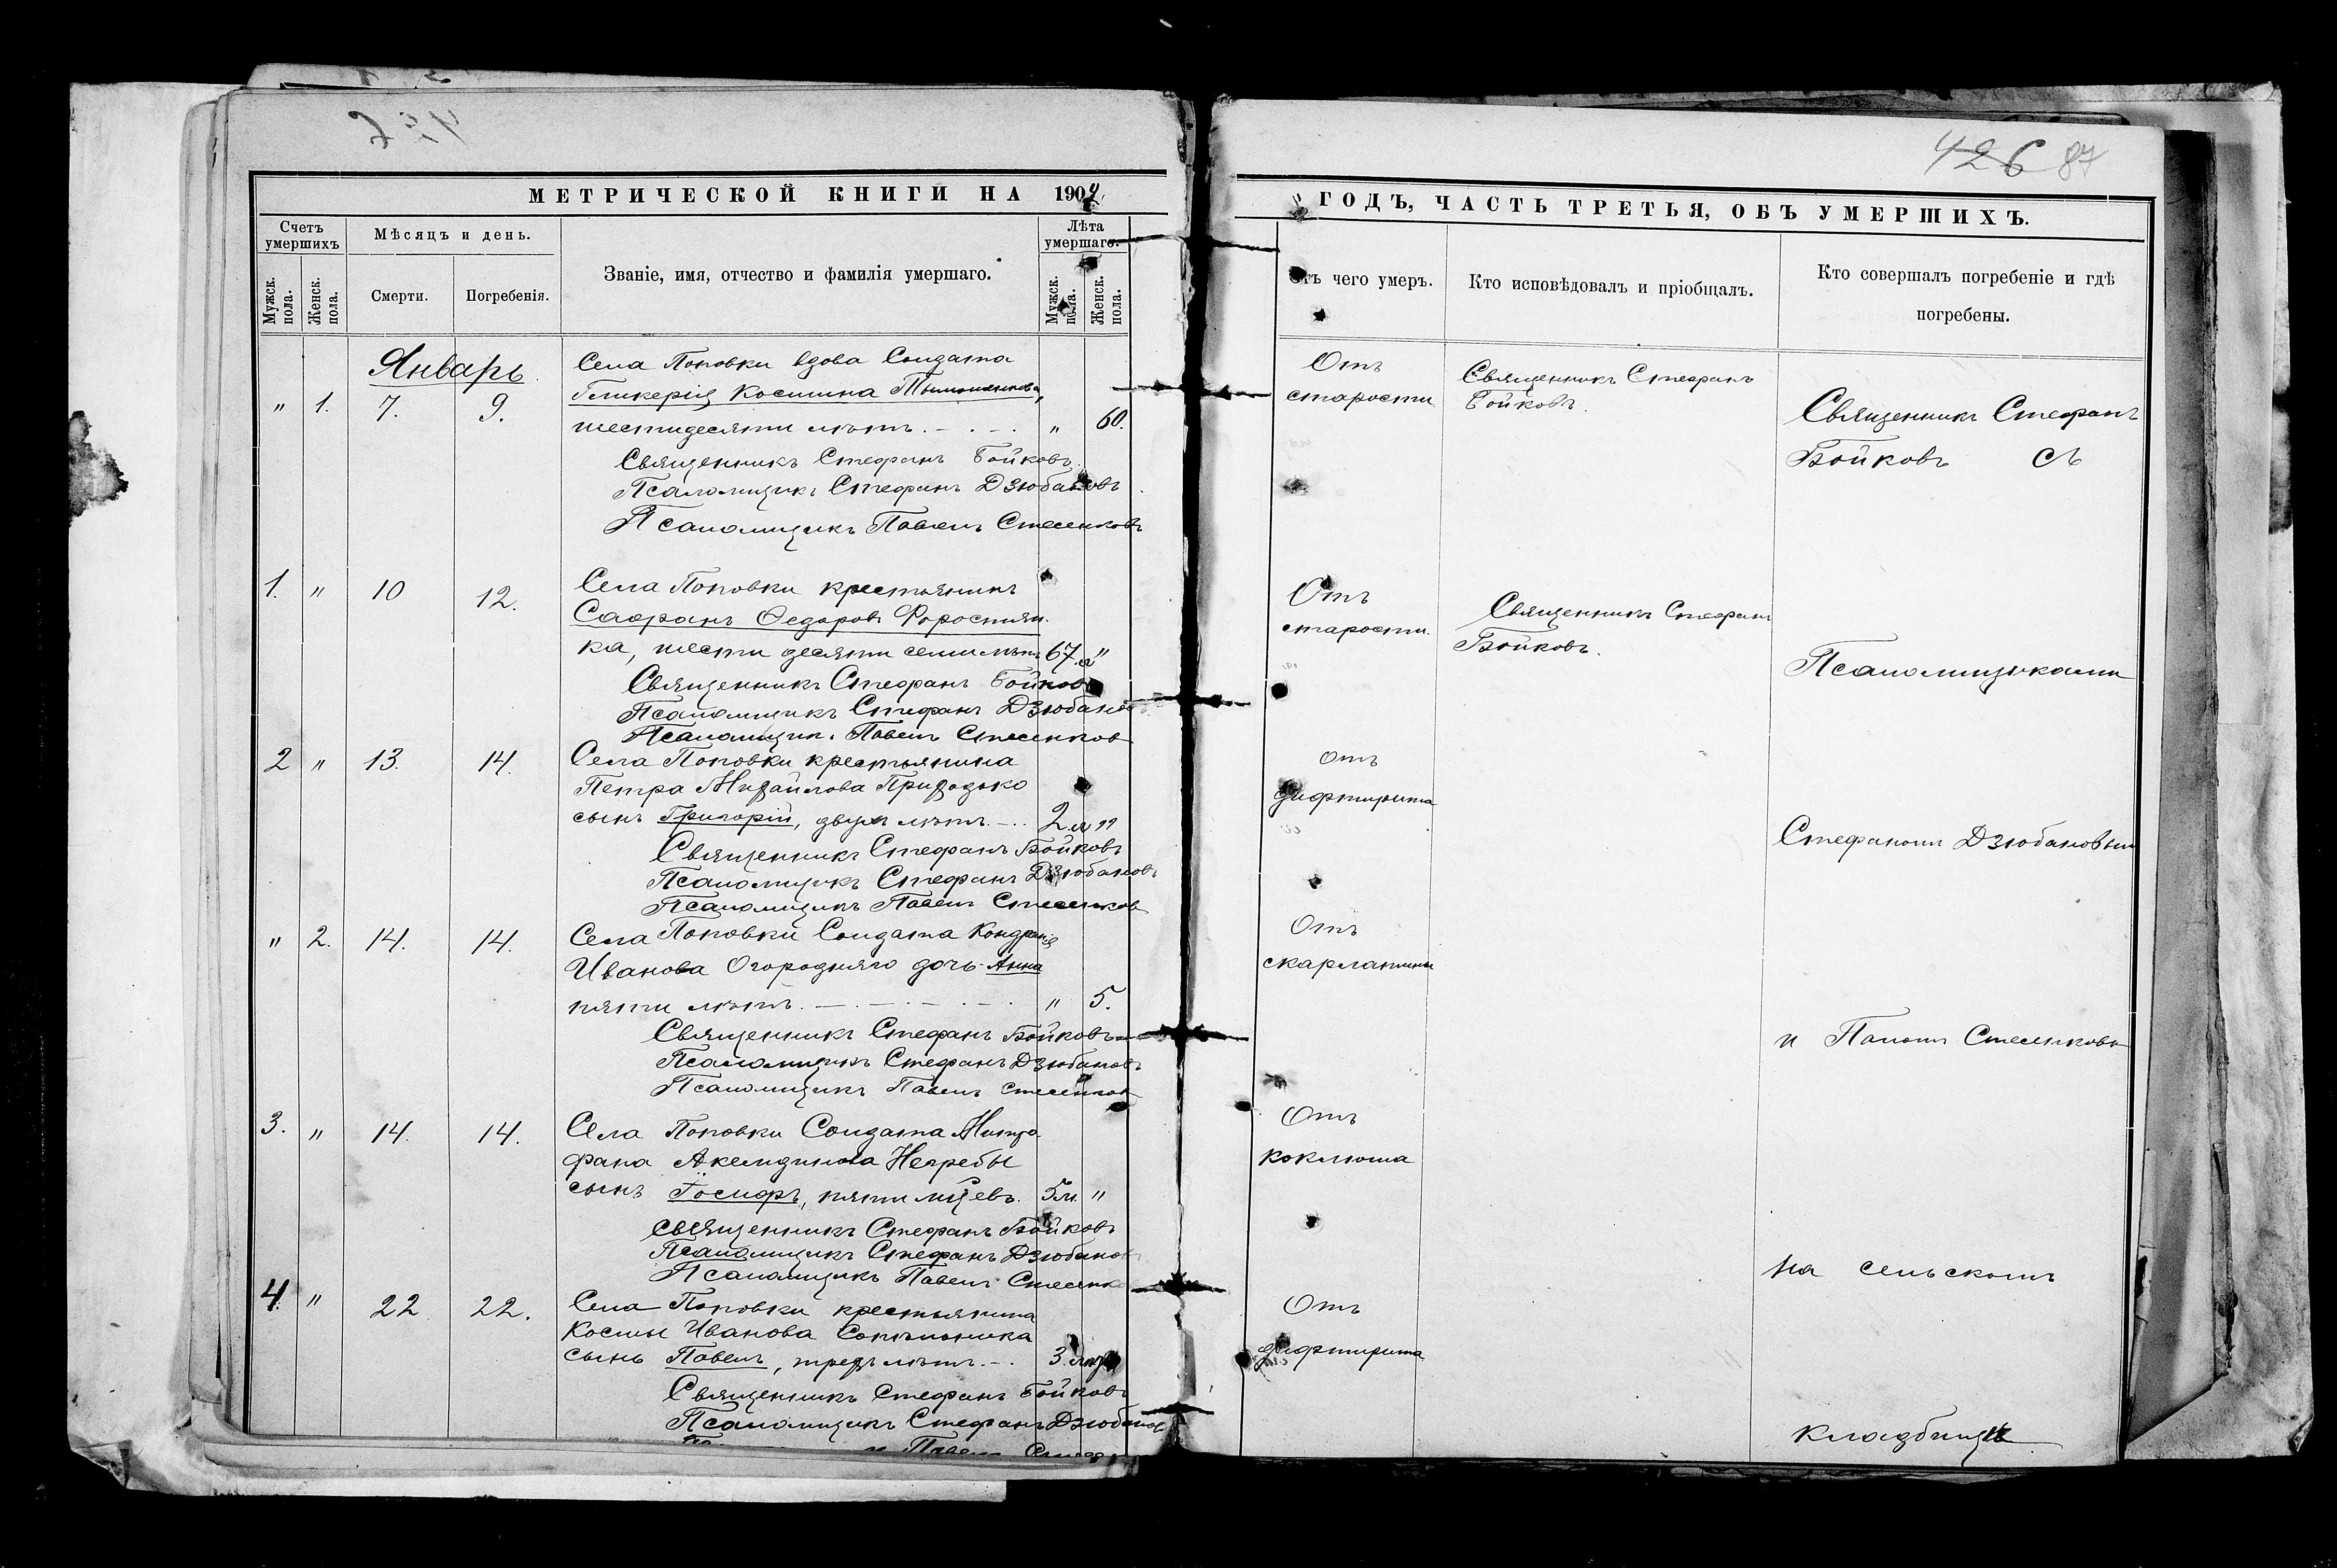 426 87
МЕТРИЧЕСКОЙ КНИГИ НА 1904
ГОДЪ, ЧАСТЬ ТРЕТЬЯ, ОБЪ УМЕРШИХЪ.
Счетъ умершихъ
Мѣсяцъ и день.
Званіе, имя, отчество и фамилія умершаго.
Лѣта умершаго.
Мужск. пола.
Женск. пола.
Смерти.
Погребенія.
Мужск. пола.
Женск. пола.
Отъ чего умеръ.
Кто исповѣдовалъ и пріобщалъ.
Кто совершалъ погребеніе и гдѣ
погребены.
Январь
Села Поповки вдова Солдата
" 1. 7. 9. Гликерія Космина
шестидесяти лѣтъ. " 60.
Священникъ Стефанъ Бойковъ
Псаломщикъ Стефанъ Дзюбановъ
Псаломщикъ Павелъ Стесенковъ
Отъ
старости
Священникъ Стефанъ
Бойковъ.
1. " 10 12. Села Поповки крестьянинъ
Сафранъ Ѳедоровъ Форостян
ка, шести десяти семи лѣтъ 67. "
Священникъ Стефанъ Бойковъ
Псаломщикъ Стефанъ Дзюбановъ
Псаломщик. Павелъ Стесенков
Отъ
старости.
Священникъ Стефанъ
Бойковъ.
2 " 13. 14. Села Поповки крестьянина
Петра Михайлова Приходько
сынъ Григорій, двухъ лѣтъ. 2 "
Священникъ Стефанъ Бойковъ
Псаломщикъ Стефанъ Дзюбановъ
Псаломщикъ Павелъ Стесенков
отъ
дифтирита
" 2. 14. 14. Села Поповки Солдата Кондрата
Иванова Огородняго дочь Анна
пяти лѣтъ. " 5.
Священникъ Стефанъ Бойковъ
Псаломщикъ Стефанъ Дзюбановъ
Псаломщикъ Павелъ Стесенков
Отъ
скарлатины
3. " 14. 14. Села Поповки Солдата Митро
фана Акиндинова Негребы
сынъ Іосифъ, пяти мцевъ. 5 м. "
Священникъ Стефанъ Бойковъ
Псаломщикъ Стефанъ Дзюбанов
Псаломщикъ Павелъ Стесенко
Отъ
коклюша
4. " 22 22. Села Поповки крестьянина
Космы Иванова
сынъ Павелъ, трехъ лѣтъ. 3.
Священникъ Стефанъ Бойковъ
Псаломщикъ Стефанъ Дзюбанов
Павел
Отъ
дифтирита
Священникъ Стефанъ
Бойковъ съ
Псаломщиками
Стефаномъ Дзюбановым
и Павломъ Стесенковы
на сельскомъ
кладбищѣ